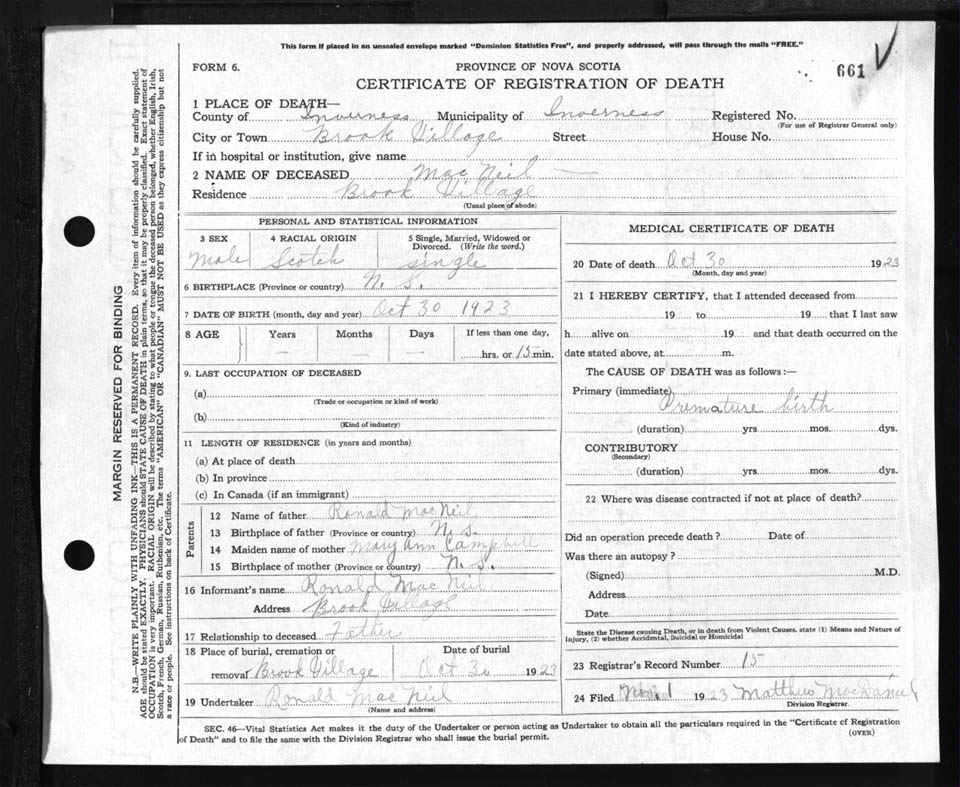 This form if placed in an unsealed envelope marked "Dominion Statistics Free", and properly addressed, will pass through the mails "FREE."
FORM 6.
PROVINCE OF NOVA SCOTIA
661
CERTIFICATE OF REGISTRATION OF DEATH
1 PLACE OF DEATH—
County of Inverness Municipality of Inverness Registered No.
(For use of Registrar General only)
City or Town Brook Village Street House No.
If in hospital or institution, give name
2 NAME OF DECEASED Mac Neil —
Residence Brook Village
(Usual place of abode)
PERSONAL AND STATISTICAL INFORMATION
3 SEX 4 RACIAL ORIGIN 5 Single, Married, Widowed or
Divorced. (Write the word.)
Male Scotch single
6 BIRTHPLACE (Province or country) N. S.
7 DATE OF BIRTH (month, day and year) Oct 30 1923
8 AGE Years Months Days If less than one day,
— — — hrs. or 15 min.
9. LAST OCCUPATION OF DECEASED
(a)
(Trade or occupation or kind of work)
(b)
(Kind of industry)
11 LENGTH OF RESIDENCE (in years and months)
(a) At place of death
(b) In province
(c) In Canada (if an immigrant)
Parents
12 Name of father Ronald MacNeil
13 Birthplace of father (Province or country) N. S.
14 Maiden name of mother Mary Ann Campbell
15 Birthplace of mother (Province or country) N. S.
16 Informant's name Ronald Mac Neil
Address Brook Village
17 Relationship to deceased Father
18 Place of burial, cremation or Date of burial
removal Brook Village Oct 30 1923
19 Undertaker Ronald Mac Neil
(Name and address)
MEDICAL CERTIFICATE OF DEATH
20 Date of death Oct 30 1923
(Month, day and year)
21 I HEREBY CERTIFY, that I attended deceased from
19 to 19 that I last saw
h alive on 19 and that death occurred on the
date stated above, at m.
The CAUSE OF DEATH was as follows:—
Primary (immediate)
Premature birth
(duration) yrs mos. dys.
CONTRIBUTORY
(Secondary)
(duration) yrs mos. dys.
22 Where was disease contracted if not at place of death?
Did an operation precede death? Date of
Was there an autopsy?
(Signed) M.D.
Address
Date
State the Disease causing Death, or in death from Violent Causes, state (1) Means and Nature of
Injury, (2) whether Accidental, Suicidal or Homicidal
23 Registrar's Record Number 15
24 Filed Nov 1 1923 Matthew MacDaniel
Division Registrar.
SEC. 46—Vital Statistics Act makes it the duty of the Undertaker or person acting as Undertaker to obtain all the particulars required in the "Certificate of Registration
of Death" and to file the same with the Division Registrar who shall issue the burial permit.
(OVER)
MARGIN RESERVED FOR BINDING
N.B.—WRITE PLAINLY WITH UNFADING INK—THIS IS A PERMANENT RECORD. Every item of information should be carefully supplied.
AGE should be stated EXACTLY. PHYSICIANS should STATE CAUSE OF DEATH in plain terms, so that it may be properly classified. Exact statement of
OCCUPATION is very important. RACIAL ORIGIN will be described by stating to what people or tongue the deceased person belonged, whether English, Irish,
Scotch, French, German, Russian, Ruthenian, etc. The terms "AMERICAN" OR "CANADIAN" MUST NOT BE USED as they express citizenship but not
a race or people. See instructions on back of Certificate.